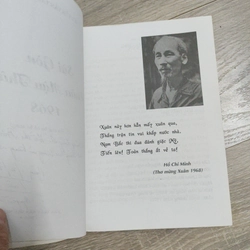 Xuân này hơn hẳn mấy xuân qua,
Thắng trận tin vui khắp nước nhà,
Nam Bắc thi đua đánh giặc Mỹ,
Tiến lên! Toàn thắng ắt về ta!
Hồ Chí Minh
(Thơ mừng Xuân 1968)